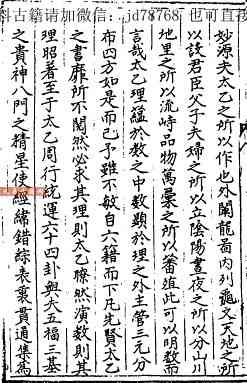 科古籍请加微信：jd78768 也可直接
妙源夫太乙之所以作也外闡龍畵内列龜文天地之所
以設君臣父子夫婦之所以立陰陽晝夜之所以分山川
地里之所以流峙品物萬彙之所以蕃殖此可以明数而
言哉太乙理蘊於数之中数顯於理之外主管三元分
布四方如是而已予雖不敏自六籍而下凡先賢太乙
之書靡所不閲然必求其理則太乙瞭然演数則其
理昭著至于太乙周行統運六十四卦與大五福三基
之貴神八門之精星使經緯錯綜表裏貫通集爲